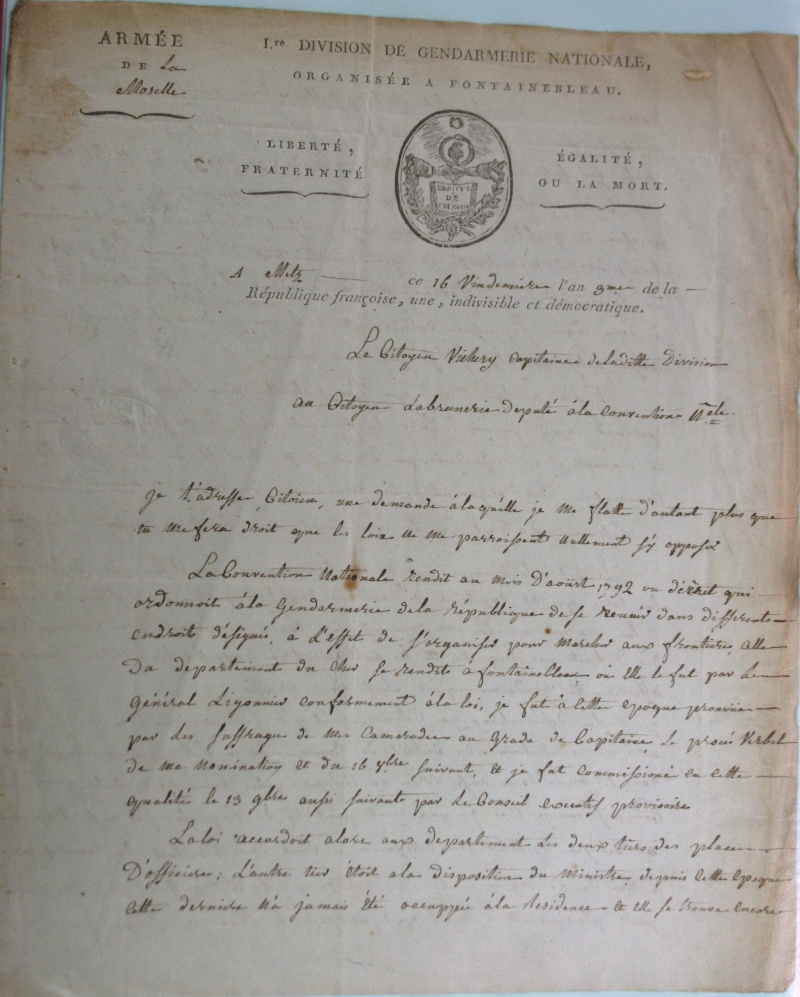 ARMÉE
DE La
Moselle
I.re DIVISION DE GENDARMERIE NATIONALE,
ORGANISÉE A FONTAINEBLEAU.
LIBERTÉ,
FRATERNITÉ
DROITS
DE
L'HOM
ÉGALITÉ,
OU LA MORT.
A Metz ce 16 Vindemiere l'an 3me de la
République françoise, une, indivisible et démocratique.
Le Citoyen capitaine de laditte Division
au Citoyen Labrunerie Deputé à la Convention Nale.
je t'adresse, Citoien, une demande à laquelle je me flatte d'autant plus que
tu me fera droit que les loix ne me parroissent nullement s'y opposer
La Convention Nationale rendit au mois D'aoürt 1792 un décret qui
ordonnoit à la Gendarmerie de la république de se reunir dans differents
endroit désignés, à L'effet de s'organiser pour marcher aux frontieres, celle
Du departement du Cher se rendit à fontainebleau, ou elle le fut par Le
Général Ligonnier conformement à la loi, je fut à cette epoque promüe
par des suffrage de mes Camarades au Grade de Capitaine, Le procès Verbal
de ma nomination et du 16 7bre suivant, et je fut commissioné en cette
qualité le 13 9bre aussi suivant par Le Conseil executif provisoire
La loi accordoit alors aux departement Les deux tiers des places
D'officiers; L'autre tier étoit a la disposition du Ministre, depuis cette epoque
cette derniere n'a jamais été occuppée à la Residence et elle se trouve encore